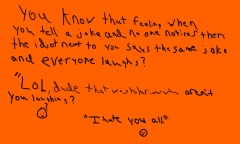 You know that feeling when
you tell a joke and no one notices then
the idiot next to you says the same joke
and everyone laughs?
"LOL, dude that was hilarious aren't
you laughing?
"I hate you all"